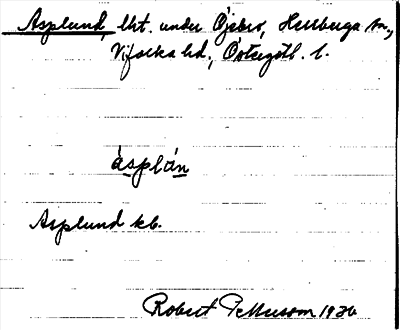 Asplund, lht. under Öjebro, Herrberga sn.,
Vifolka hd., Östergötl. l.
àsplán
Asplund kb.
Robert Pettersson 1936